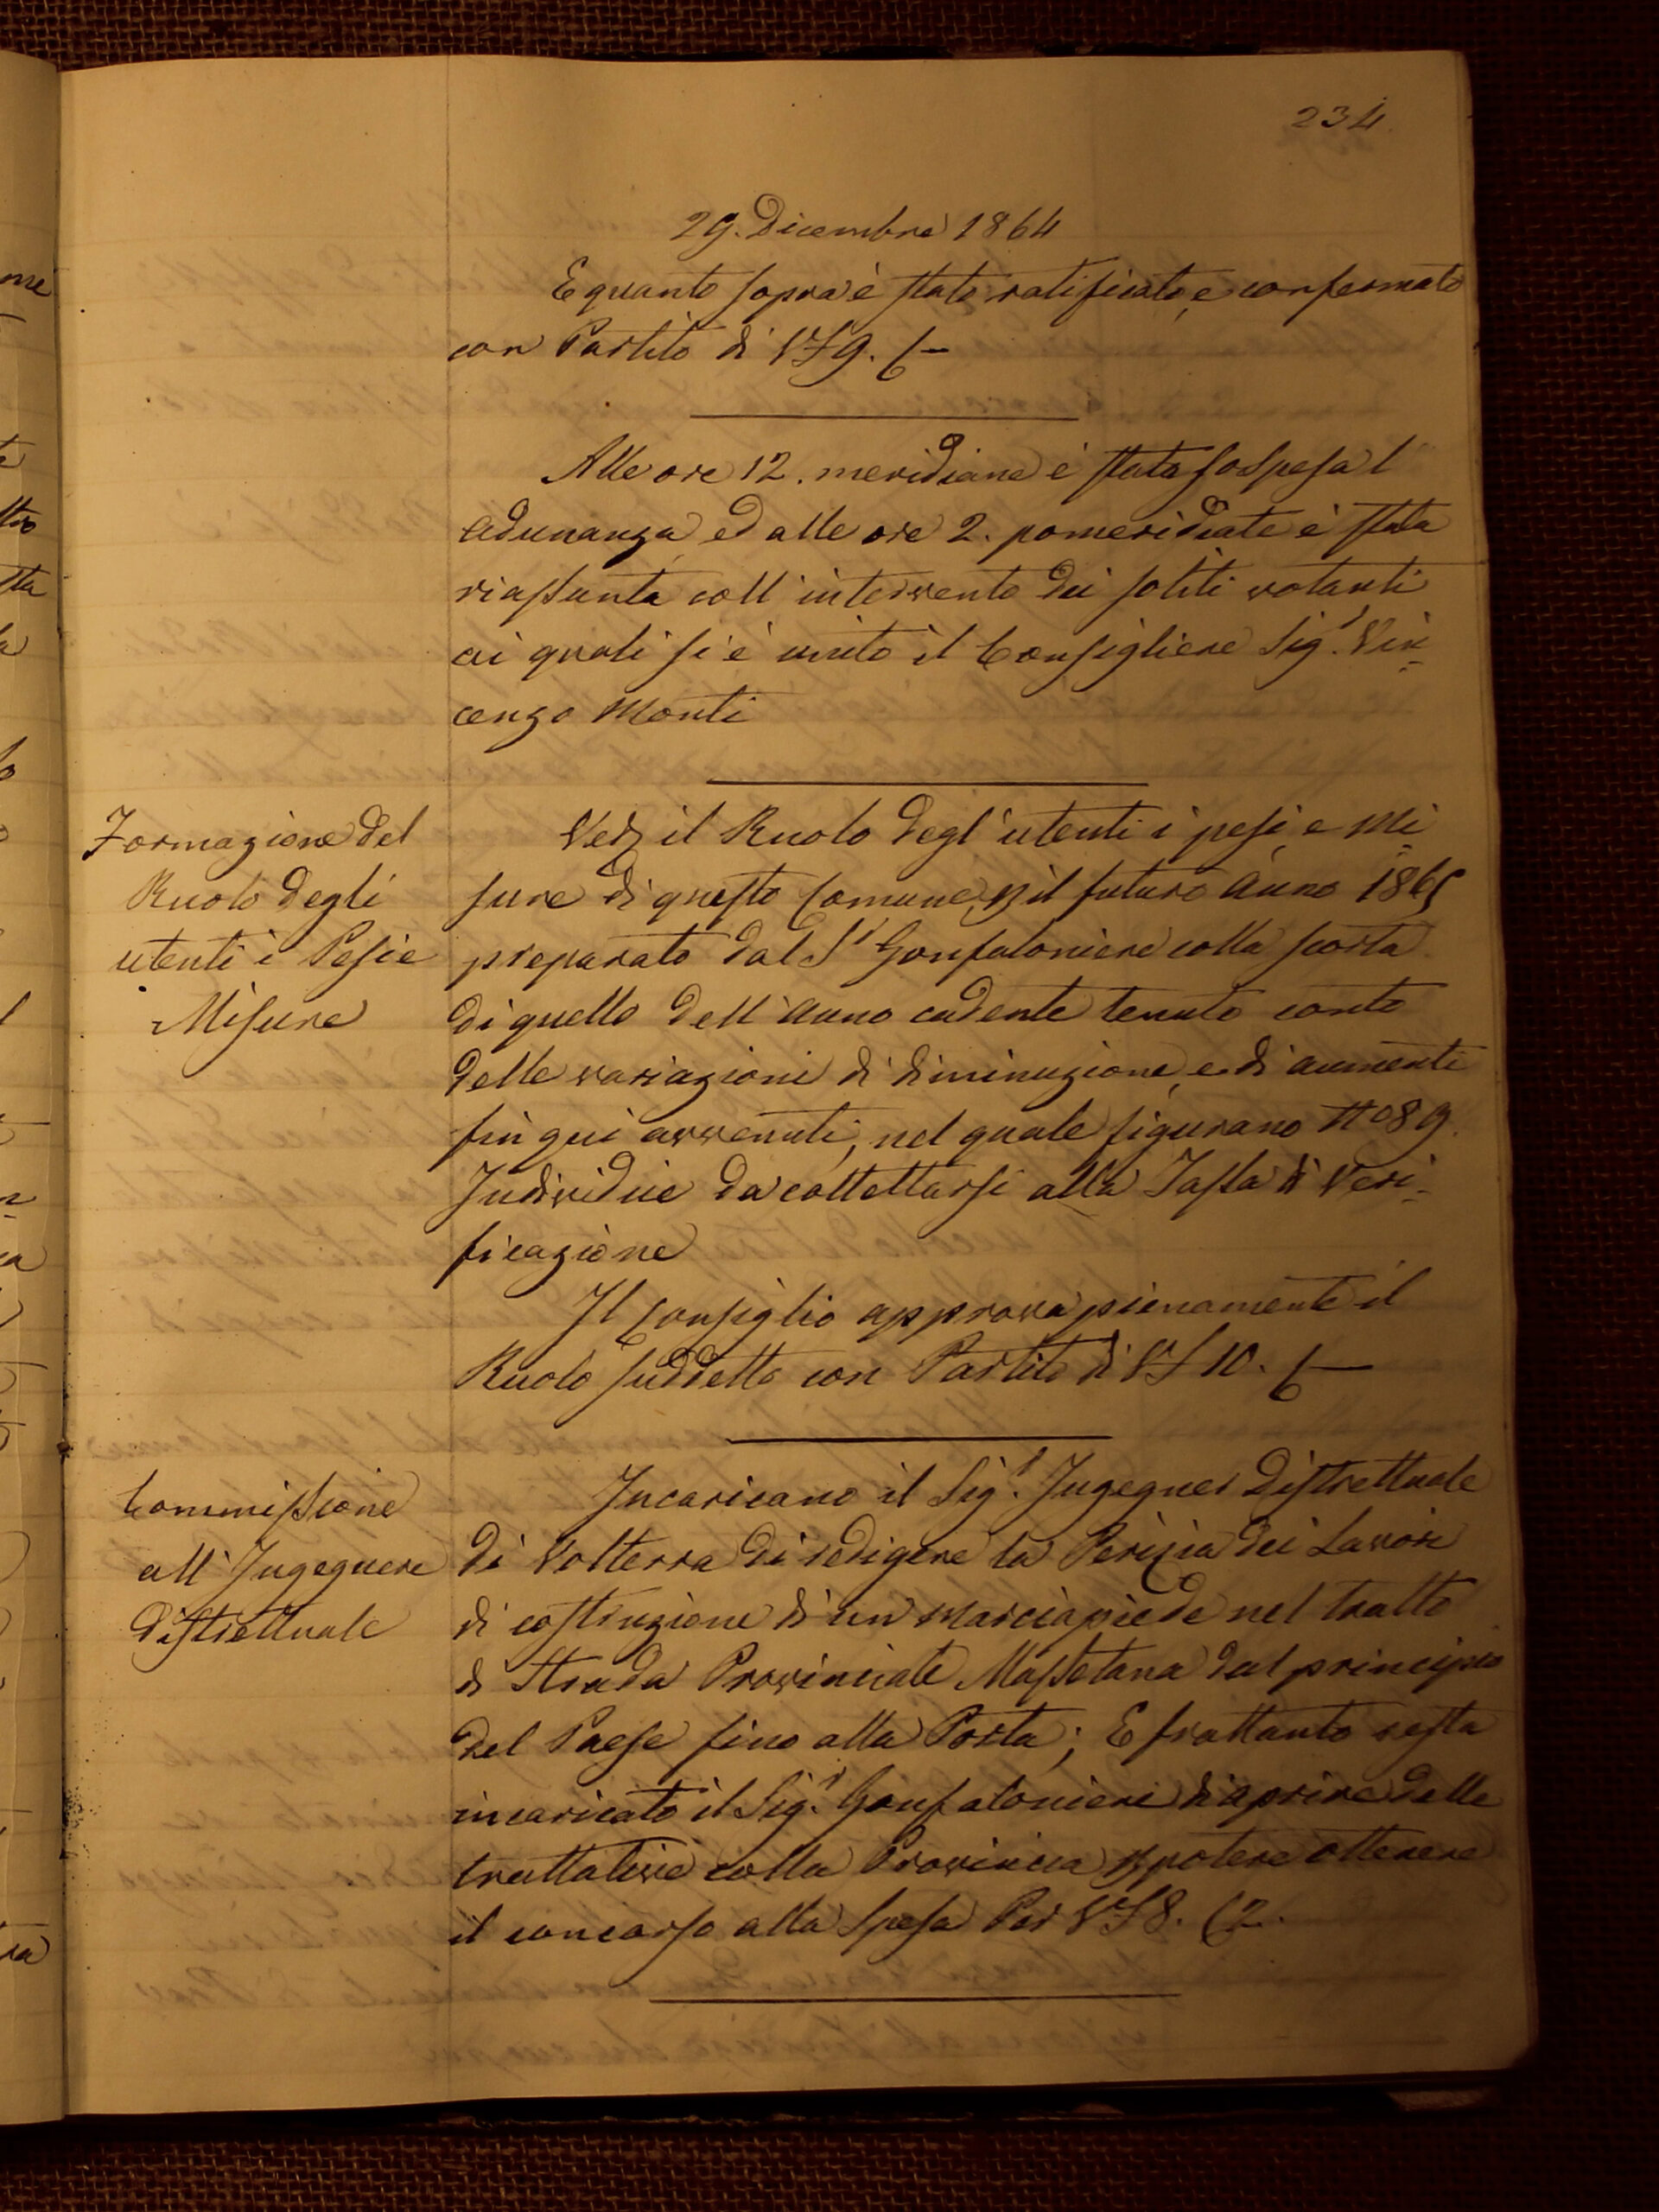 234
29. Dicembre 1864
E quanto sopra è stato ratificato, e confermato
con Partito di VF 9. C —
Alle ore 12. meridiane è stata sospesa l
adunanza, ed alle ore 2. pomeridiate è stata
riassunta coll' intervento dei soliti votanti
ai quali si è unito il Consigliere Sig.r Vin
cenzo Monti
Formazione del
Ruolo degli
utenti i Pesi e
Misure
il Ruolo degl' utenti i pesi, e Mi
sure di questo Comune, p il futuro Anno 1865
preparato dal S.r Gonfaloniere colla scorta
di quello dell' Anno cadente tenuto conto
delle variazioni di diminuzione, e di aumenti
fin qui avvenuti, nel quale figurano No 89.
Individui da collettarsi alla Tassa di Veri-
ficazione
Il Consiglio approva pienamente il
Ruolo suddetto con Partito di VF 10. C —
Commissione
all' Ingegnere
Distrettuale
Incaricano il Sig.r Ingegner Distrettuale
di Volterra di redigere la Perizia dei Lavori
di costruzione di un Marciapiede nel tratto
di Strada Provinciale Massetana dal principio
del Paese fino alla Porta; E frattanto resta
incaricato il Sig.r Gonfaloniere di aprire delle
trattative colla Provincia p potere ottenere
il concorso alla Spesa Per VF 8. C 2.